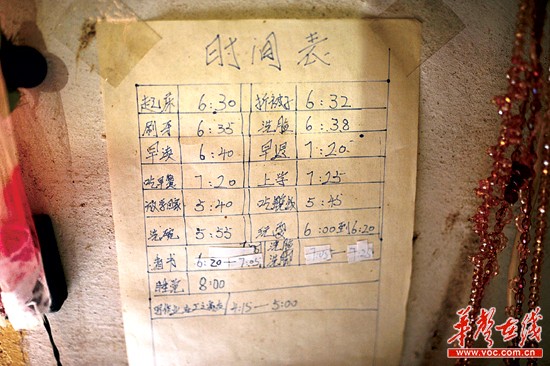 时间表
起床 6:30 折被子 6:32
刷牙 6:35 洗脸 6:38
早读 6:40 早退 7:20
吃早餐 7:20 上学 7:25
5:40 5:45
洗碗 5:55 6:00到6:20
看书 6:20—7:05 洗脚 7:05 — 7:25
睡觉 8:00
4:15—5:00
华声在线
www.voc.com.cn